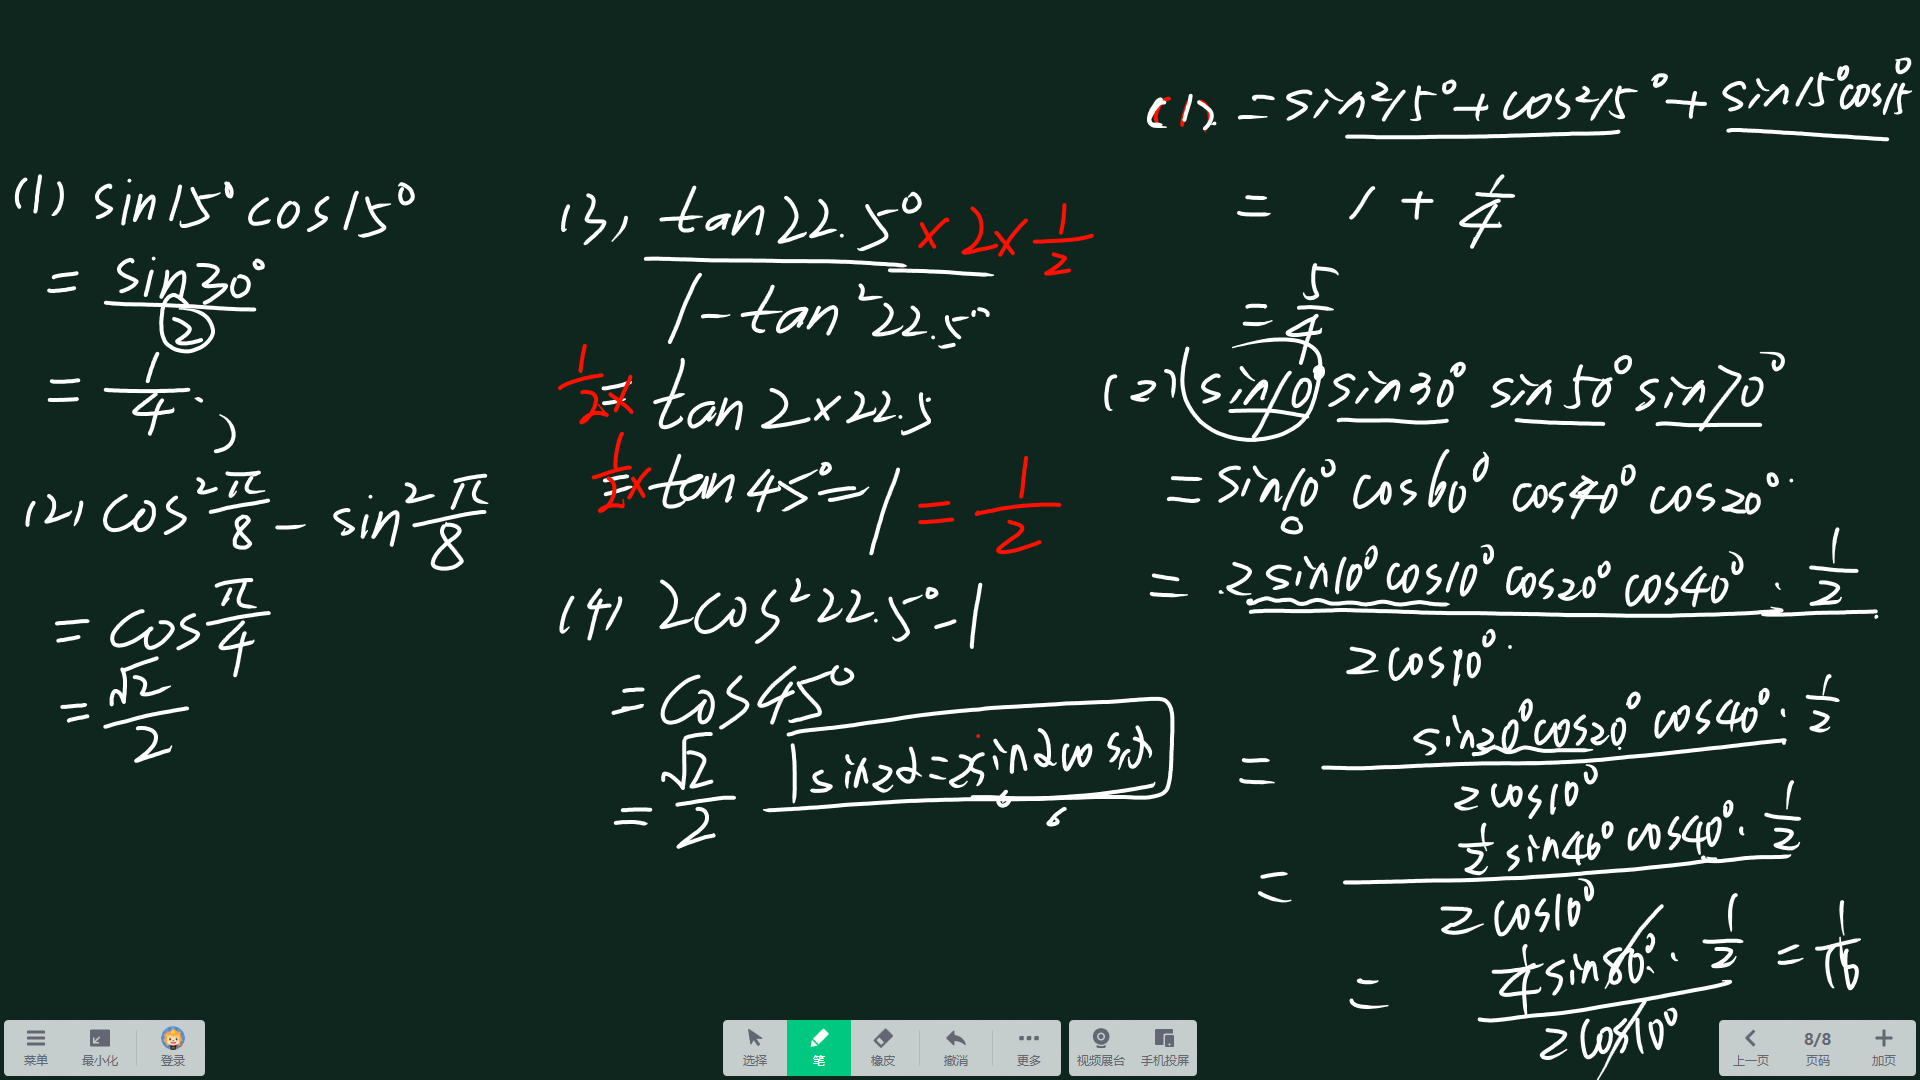 (1) sin15° cos15°
= sin30° / 2
= 1/4.
(2) cos² π/8 - sin² π/8
= cos π/4
= √2/2
(3) tan22.5° × 2 × 1/2 / 1 - tan²22.5°
1/2 × = tan 2×22.5
1/2 × = tan45° = 1 = 1/2
(4) 2cos²22.5° - 1
= cos45°
= √2/2
sin2α = 2sinαcosα
(1). = sin²15° + cos²15° + sin15°cos15°
= 1 + 1/4
= 5/4
(2) sin10° sin30° sin50° sin70°
= sin10° cos60° cos40° cos20°.
= 2sin10°cos10°cos20°cos40° · 1/2 / 2cos10°
= sin20°cos20°cos40° · 1/2 / 2cos10°
= 1/2 sin40°cos40° · 1/2 / 2cos10°
= 1/4 sin80° · 1/2 / 2cos10° = 1/16
菜单 最小化 登录 选择 笔 橡皮 撤消 更多 视频展台 手机投屏 上一页 8/8 页码 加页